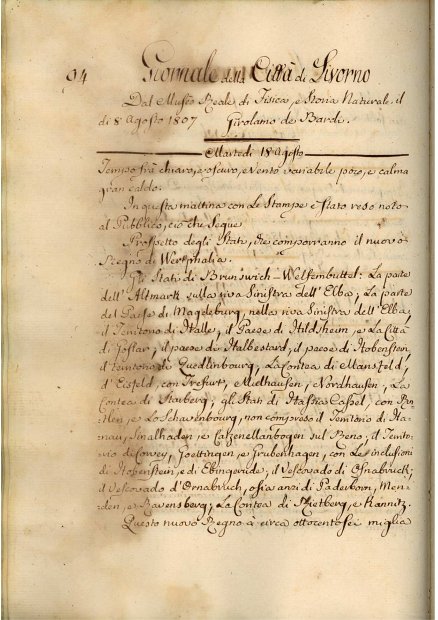 94
Giornale della Città di Livorno
Dal Museo Reale di Fisica, e Storia Naturale, il
di 8 Agosto 1807 Girolamo de Bardi.
Martedì 18 Agosto
Tempo frà chiaro, e oscuro, e vento variabile poco, e calma
gran caldo.
In questa mattina con le Stampe è stato reso noto
al Pubblico, ciò che segue
Prospetto degli Stati, che comporranno il nuovo
Regno di Westphalia.
Gli Stati di Brunswich-Wolfembuttel: La parte
dell'Altmark sulla riva Sinistra dell'Elba; La parte
del Paese di Magdeburg, nella riva Sinistra dell'Elba,
il Territorio di Halle, il Paese di Hildsheim e la Città
di Goslar, il paese de Halbestard, il paese di Hohenstein,
il territorio di Quedlinbourg, La Contea di Mansfeld,
d'Eisfeld, con Trefurt, Mulhausen, Nordhausen, La
Contea di Starberg, gli Stati di Hassia Cassel, con
e lo Schavenbourg, non compreso il Territorio di Ha-
nau, Smalhaden, e Catzenellanbogen sul Reno, il Territo-
rio di Corvey, Goettingen, e Grubenhagen, con le inclusioni
di Hohenstein, e di Elbingeride, il Vescovado di Osnabruck,
il Vescovado d'Ornabruch, osia anzi di Paderborn, Men-
den, e Ravensberg, La Contea di Rietberg, e Kannitz.
Questo nuovo Regno à circa ottocentosei miglia